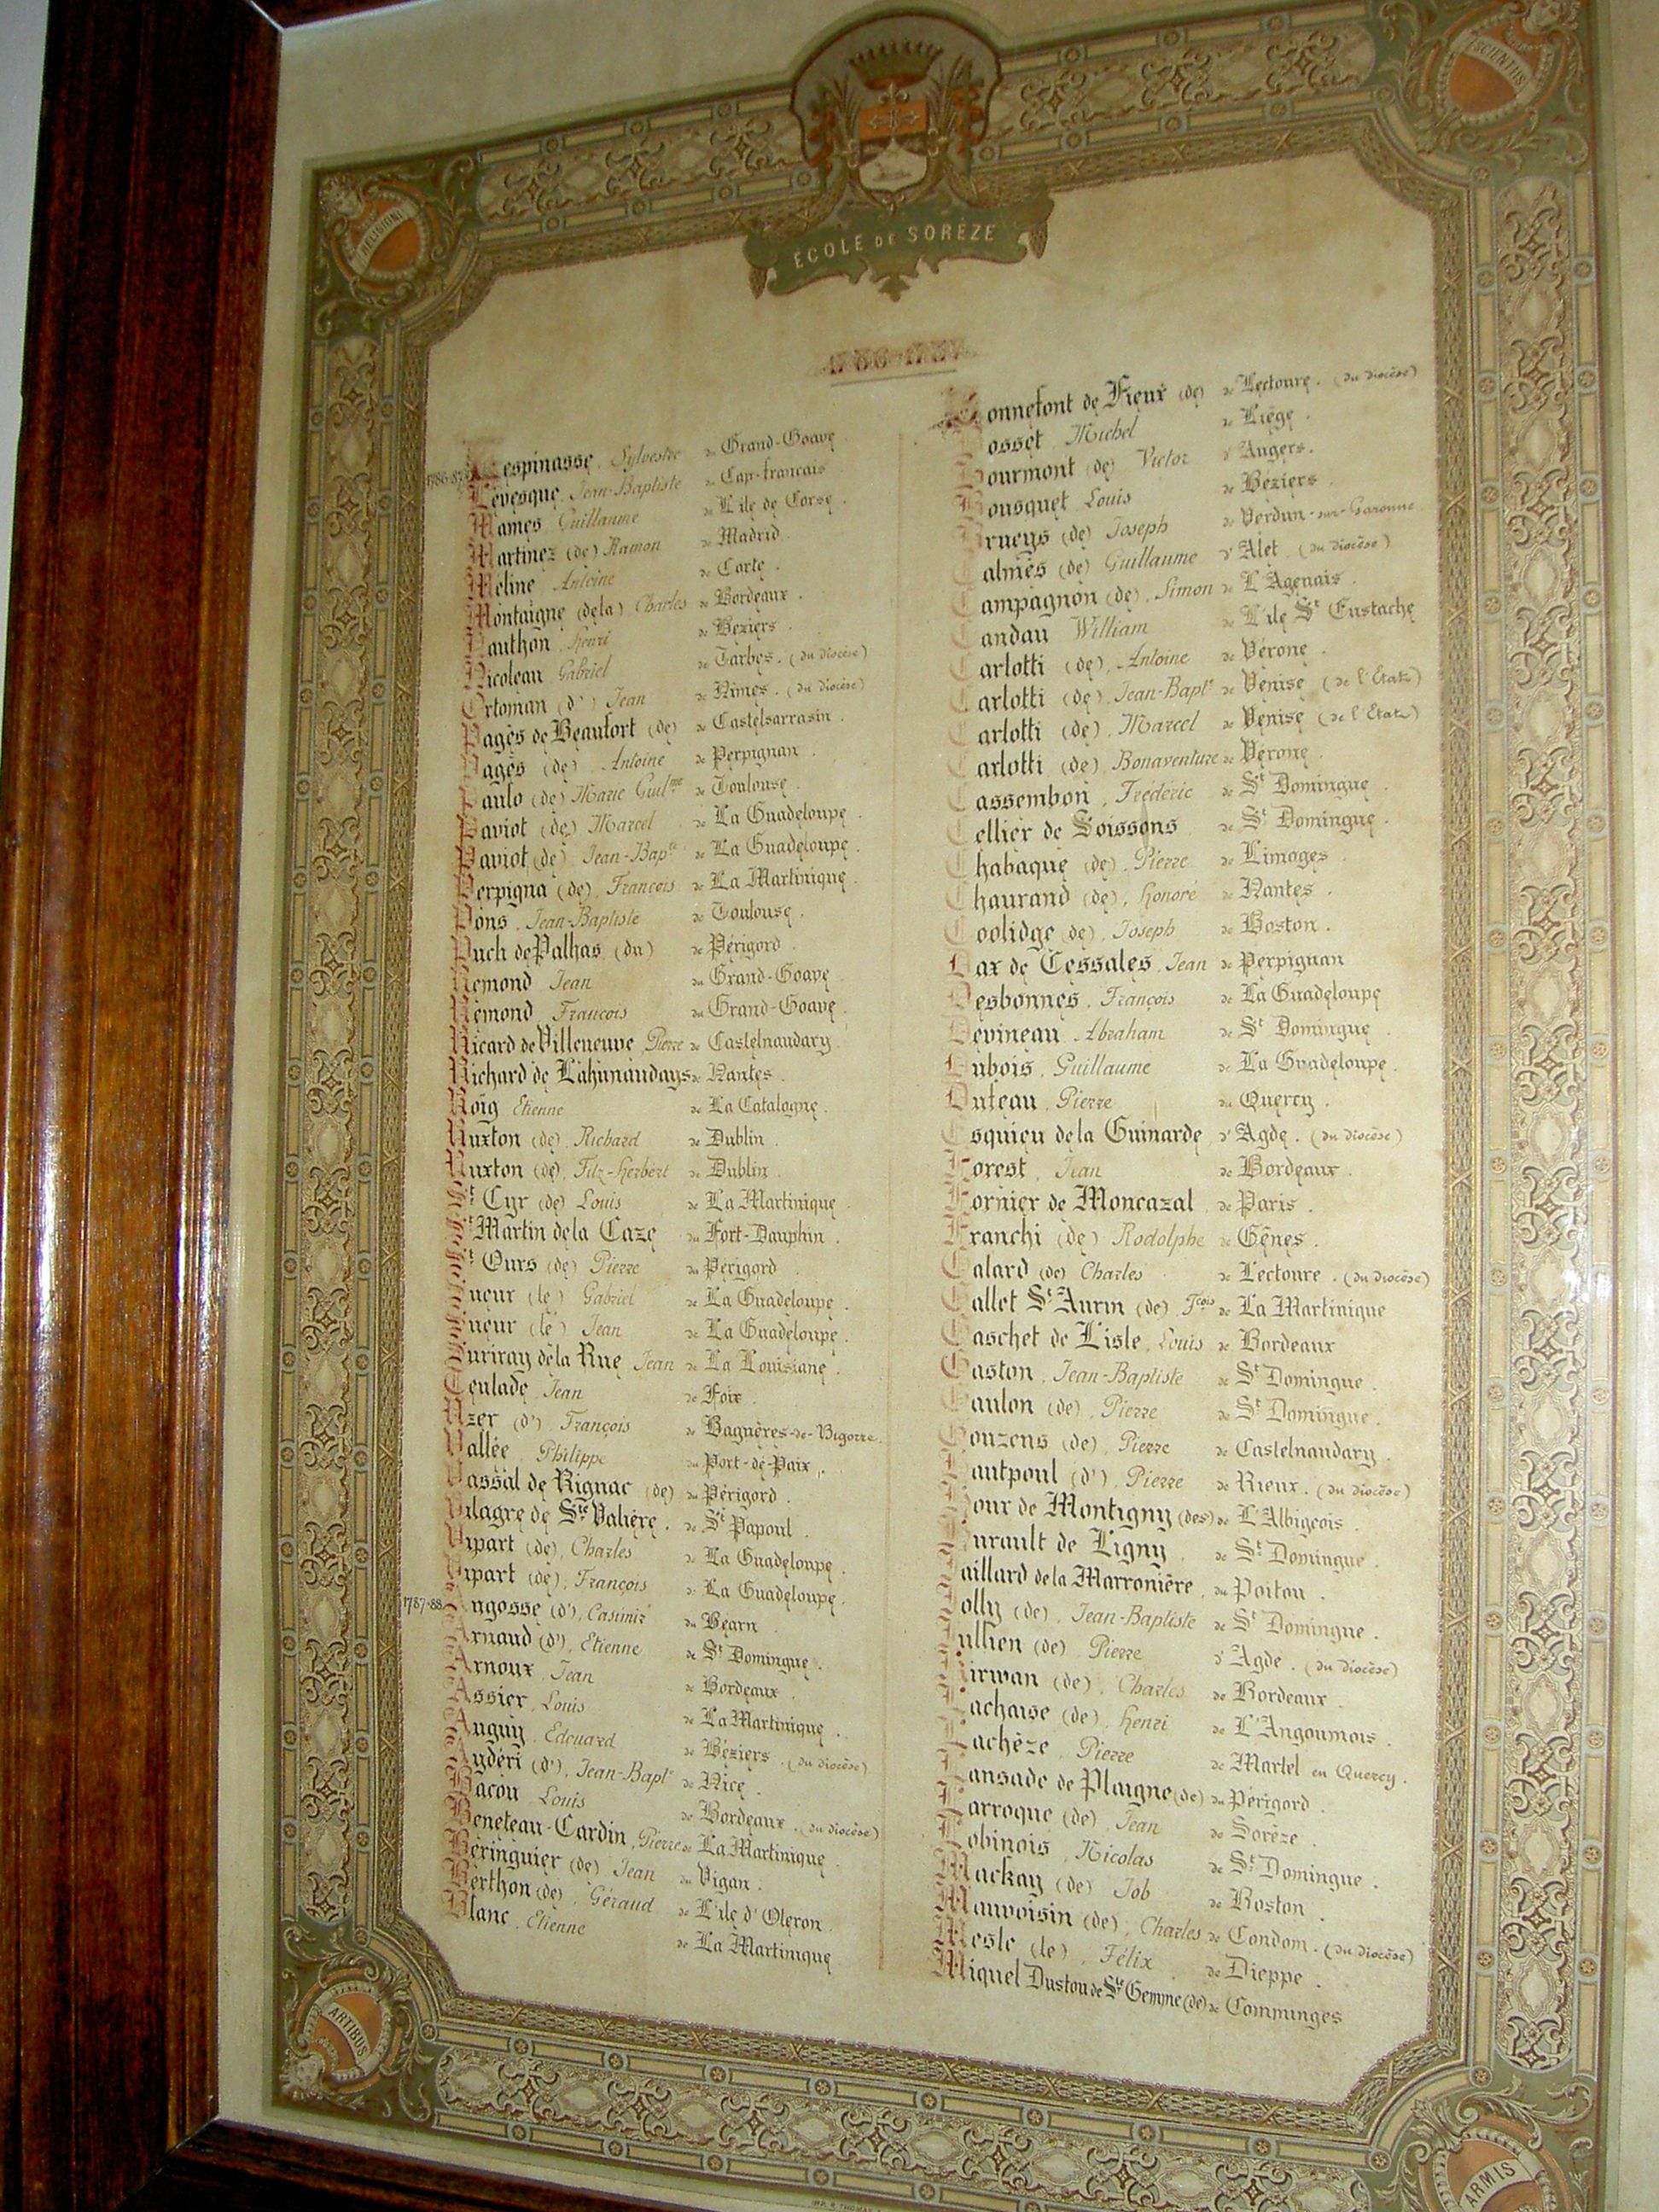 RELIGIONI
SCIENTIIS
ÉCOLE DE SORÈZE
1786-1787
1786-87 Lespinasse, Sylvestre du Grand-Goave
Lévesque, Jean-Baptiste du Cap-français
Mamès Guillaume de L'ile de Corse.
Martinez (de) Ramon de Madrid
Méline Antoine de Corte.
Montaigne (de la) Charles de Bordeaux.
Nauthon, Henri de Béziers.
Nicoleau Gabriel de Tarbes. (du diocèse)
Ortoman (d') Jean de Nîmes. (du diocèse)
Pagès de Beaufort (de) de Castelsarrasin.
Pagès (de). Antoine de Perpignan.
Paulo (de) Marie Guilme de Toulouse.
Paviot (de) Marcel de La Guadeloupe.
Paviot (de) Jean-Bapte de La Guadeloupe.
Perpigna (de). François de La Martinique.
Pons. Jean-Baptiste de Toulouse.
Puch de Palhas (du) du Périgord.
Rémond Jean du Grand-Goave
Rémond François du Grand-Goave.
Ricard de Villeneuve Pierre de Castelnaudary.
Richard de Lahunaudays de Nantes.
Roïg Etienne de La Catalogne.
Ruxton (de). Richard de Dublin.
Ruxton (de). Fitz-Herbert de Dublin.
St Cyr (de) Louis de La Martinique.
St Martin de la Caze du Fort-Dauphin.
St Ours (de) Pierre du Périgord.
Sueur (le) Gabriel de La Guadeloupe.
Sueur (le) Jean de La Guadeloupe.
Suriray de la Rue Jean de La Louisiane.
Teulade, Jean de Foix.
Uzer (d') François de Bagnères-de-Bigorre.
Vallée Philippe du Port-de-Paix.
Vassal de Rignac (de) du Périgord.
Vilagre de Ste Valière. de St Papoul.
Vipart (de), Charles de La Guadeloupe.
Vipart (de), François de La Guadeloupe.
1787-88 Angosse (d'), Casimir du Béarn
Arnaud (d'), Etienne de St Domingue.
Arnoux Jean de Bordeaux.
Assier, Louis de La Martinique.
Auguy, Edouard de Béziers. (du diocèse)
Audéri (d'), Jean-Bapte de Nice.
Bacon Louis de Bordeaux. (du diocèse)
Beneteau-Cardin, Pierre de La Martinique.
Béringuier (de) Jean du Vigan.
Berthon (de) Géraud de L'ile d'Oleron.
Blanc, Etienne de La Martinique
Bonnefont de Fieux (de) de Lectoure. (du diocèse)
Bosset. Michel de Liège.
Bourmont (de) Victor d'Angers.
Bousquet Louis de Béziers.
Brueys (de) Joseph de Verdun-sur-Garonne.
Calmès (de) Guillaume d'Alet. (du diocèse)
Campagnon (de), Simon de L'Agenais.
Candau William de L'ile St Eustache
Carlotti (de), Antoine de Vérone.
Carlotti (de), Jean-Bapte de Venise (de l'Etat)
Carlotti (de), Marcel de Venise (de l'Etat)
Carlotti (de), Bonaventure de Vérone.
Cassembon, Frédéric de St Domingue.
Cellier de Soissons de St Domingue.
Chabaque (de). Pierre de Limoges.
Chaurand (de), Honoré de Nantes.
Coolidge (de). Joseph de Boston.
Dax de Cessales, Jean de Perpignan
Desbonnes, François de La Guadeloupe
Devineau Abraham de St Domingue.
Dubois, Guillaume de La Guadeloupe.
Duteau, Pierre du Quercy.
Esquieu de la Guinarde d'Agde. (du diocèse)
Forest, Jean de Bordeaux.
Fornier de Moncazal de Paris.
Franchi (de) Rodolphe de Gênes.
Galard (de) Charles de Lectoure. (du diocèse)
Gallet St Aurin (de), Fçois de La Martinique
Gaschet de Lisle, Louis de Bordeaux
Gaston, Jean-Baptiste de St Domingue.
Gaulon (de), Pierre de St Domingue.
Gouzens (de), Pierre de Castelnaudary.
Hautpoul (d'), Pierre de Rieux. (du diocèse)
Hour de Montigny (des) de L'Albigeois.
Hurault de Ligny de St Domingue.
Jaillard de la Marronière, du Poitou.
Jolly (de), Jean-Baptiste de St Domingue.
Jullien (de) Pierre d'Agde. (du diocèse)
Kirwan (de), Charles de Bordeaux.
Lachaise (de), Henri de L'Angoumois.
Lachèze, Pierre de Martel en Quercy.
Lansade de Plaigne (de) du Périgord.
Larroque (de), Jean de Sorèze.
Lobinois, Nicolas de St Domingue.
Mackay (de) Job de Boston.
Mauvoisin (de), Charles de Condom. (du diocèse)
Mesle (le), Félix de Dieppe.
Miquel Dustou de Ste Gemme (de) de Comminges
ARTIBUS
ARMIS